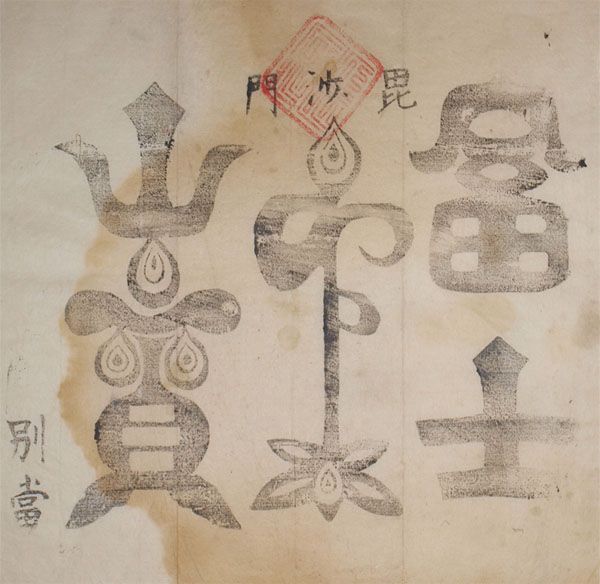 毘沙門
富士
山寶
別當